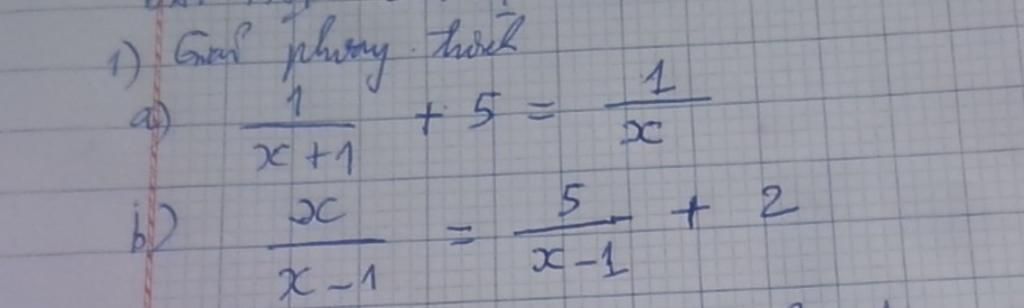 1) Giải phương trình
a) 1/(x+1) + 5 = 1/x
b) x/(x-1) = 5/(x-1) + 2